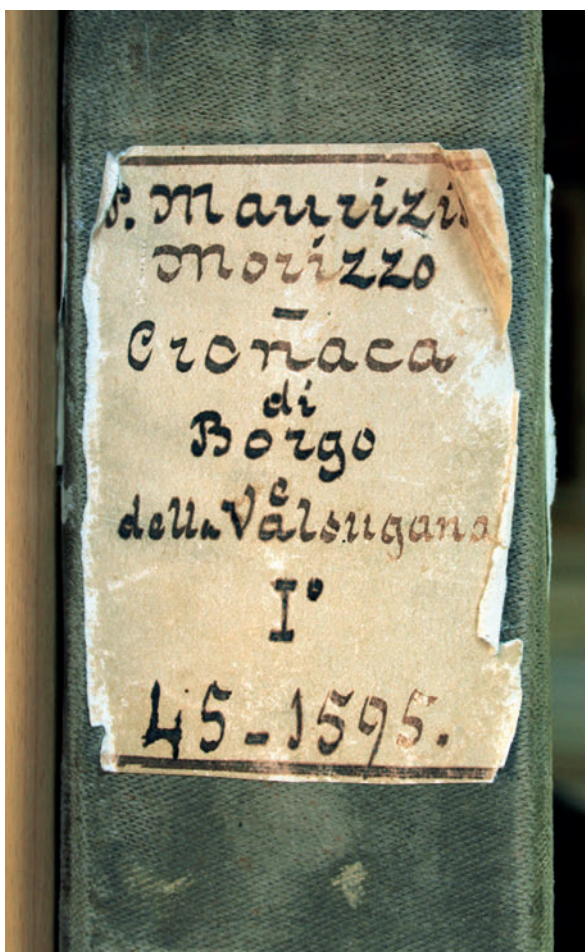 P. Maurizio
Morizzo
–
Cronaca
di
Borgo
e
della Valsugana
Iº
45-1595.